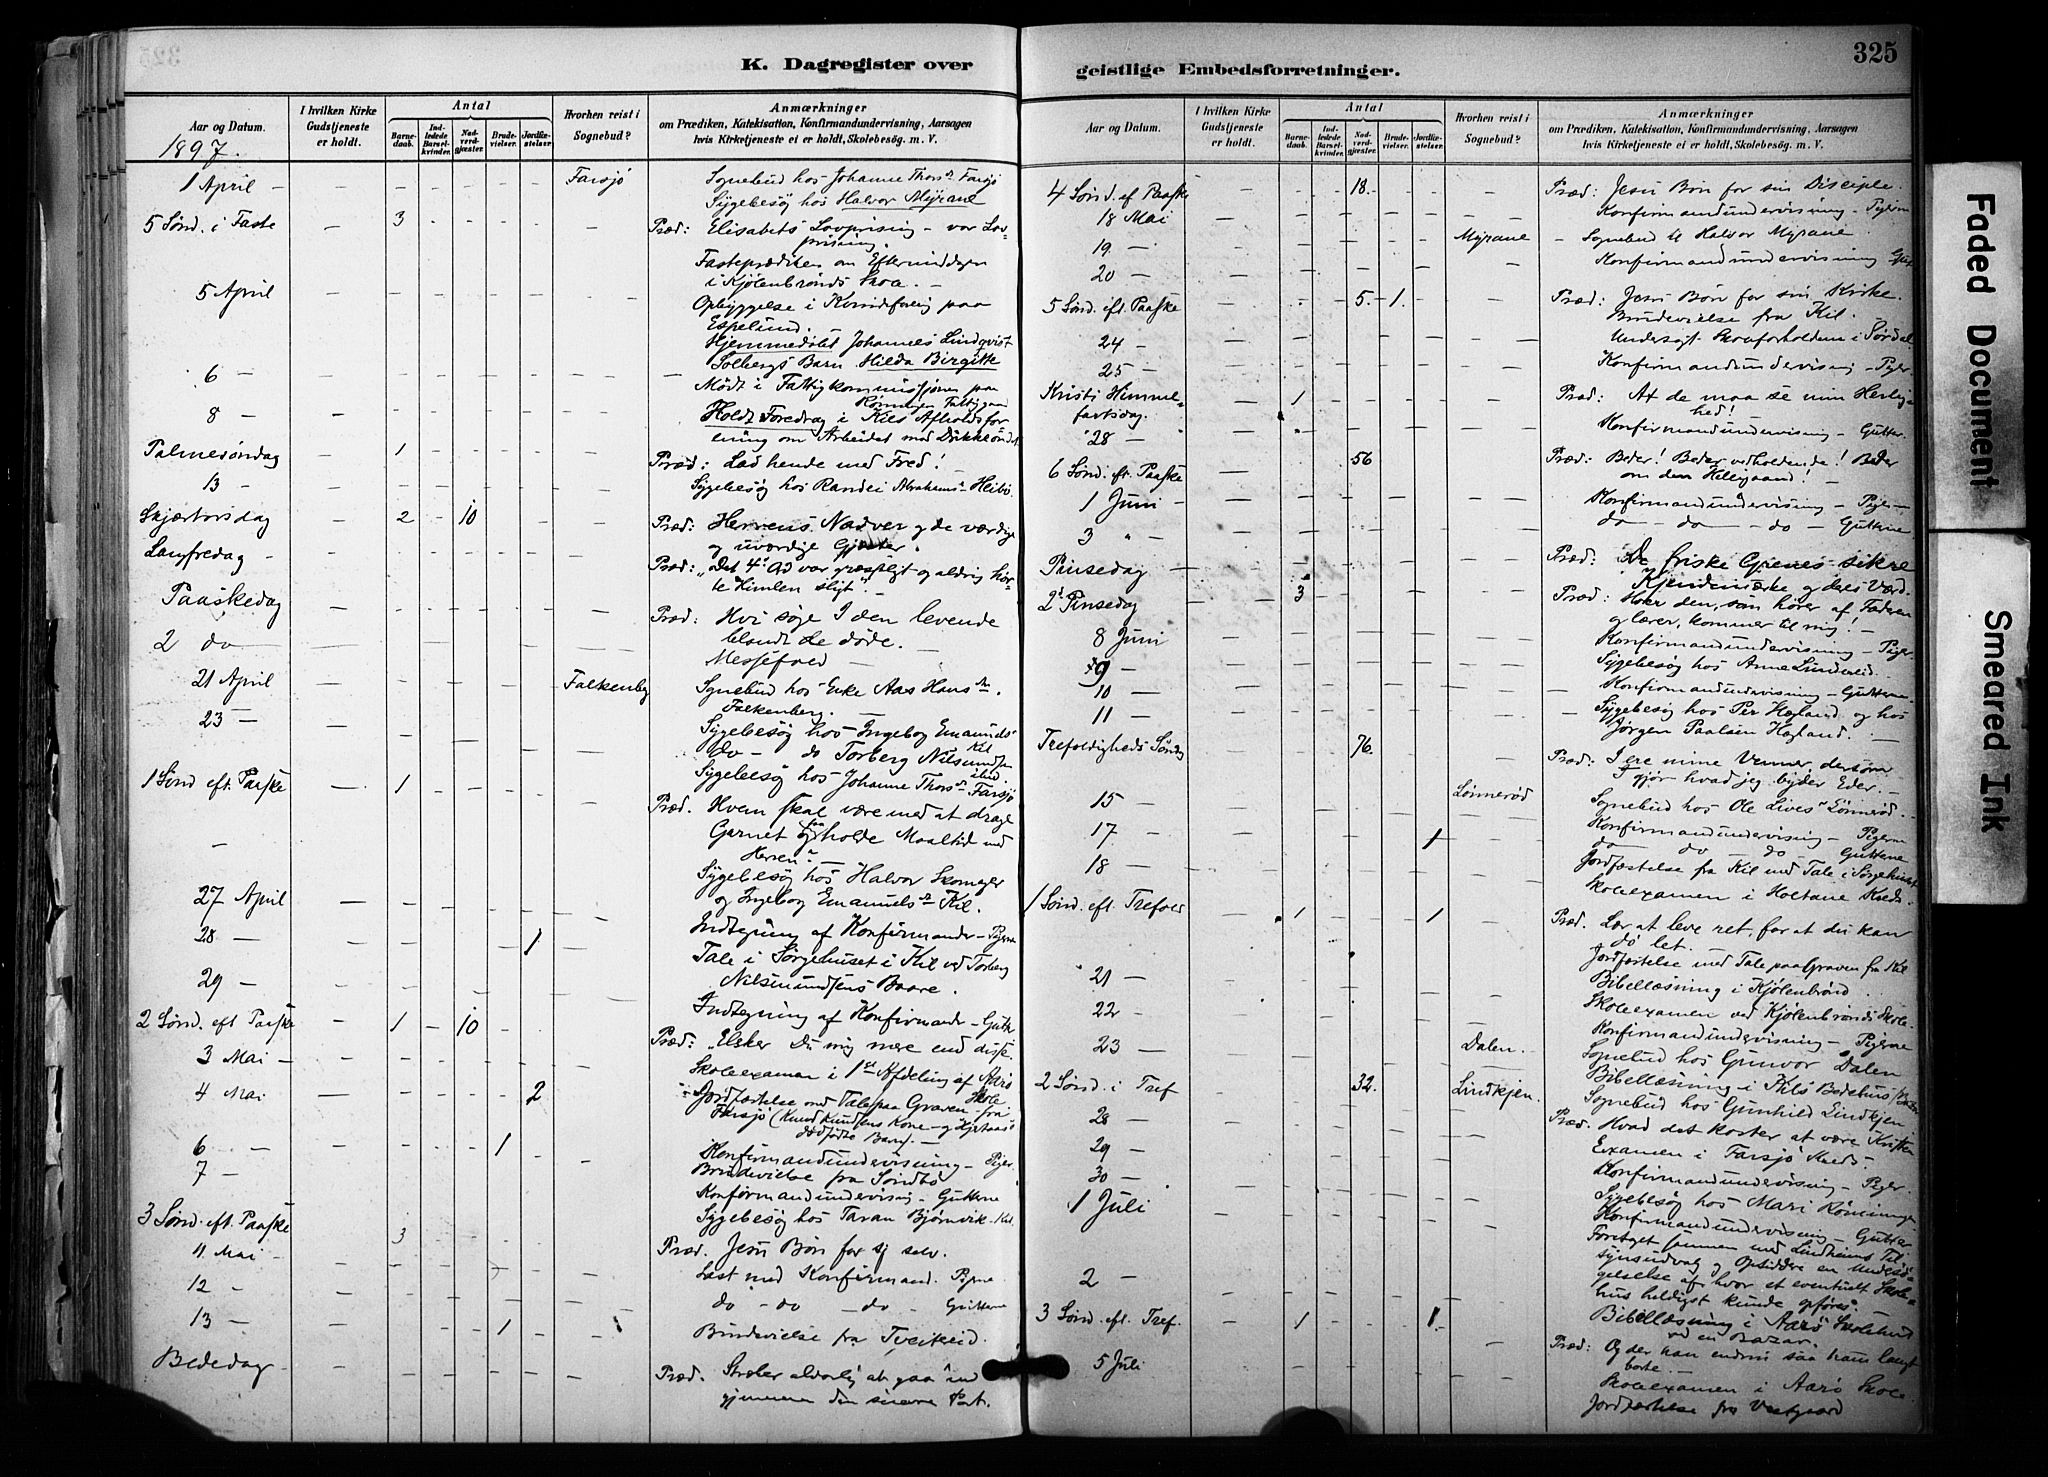 325
K. Dagregister over
geistlige Embedsforretninger.
Aar og Datum.
I hvilken Kirke Gudstjeneste er holdt.
Antal
Barnedaab.
Indledede Barselkvinder.
Nadverdgjæster.
Brudevielser.
Jordfæstelser.
Hvorhen reist i Sognebud?
Anmærkninger
om Prædiken, Katekisation, Konfirmandundervisning, Aarsagen
hvis Kirketjeneste ei er holdt, Skolebesøg. m. V.
1897.
1 April - Farsjø Sognebud hos Johanne Thorsdr Farsjø
Sygebesøg hos Halvor Myrane
5 Sønd. i Faste 3 Præd: Elisabets Lovprising - vor Lov-
prisning.
Fasteprædiken om Eftermiddagen
i Kjølenbrønds Skole. -
5 April Opbyggelse i Kvindeforening paa
Espelund.
Hjemmedøbt Johannes Lindqvist
Solbergs Barn Hilda Birgitte
6 - Mødt i Fattigkommissjonen paa
Rønningen Fattiggaard
8 - Holdt Foredrag i Kils Afholdsfor-
ening om Arbeidet mod Drikkeondet
Palmesøndag 1 Præd: Lad hende med Fred!
13 - Sygebesøg hos Randei Abrahamsdr Heibø
Skjærtorsdag 2 10 Præd: Herrens Nadver og de værdige
og uværdige Gjæster.
Langfredag - Præd: "Det 4de Ord var græsseligt og aldrig hør-
te Himlen sligt". -
Paaskedag Præd: Hvi søge I den levende
blandt de døde.
2 do - Messefald
21 April Falkenberg Sognebud hos Enke Aas Hansdr.
Falkenberg. -
23 - Sygebesøg hos Ingeborg Emanuelsdr
Kil
do - do Torberg Nilsmundsen
ibid.
Sygebesøg hos Johanne Thorsdr Farsjø
1 Sønd eft. Paaske 1 Præd. Hvem skal være med at drage
Garnet og faa holde Maaltid med
Herren? -
Sygebesøg hos Halvor Skomager
og Ingeborg Emanuelsdr Kil.
27 April Indtegning af Konfirmander - Pigerne
28 - 1 Tale i Sørgehuset i Kil ved Torberg
Nilsmundsens Baare.
29 - Indtegning af Konfirmander - Gutter
2 Sønd. eft Paaske 1 10 Præd: "Elsker Du mig mere end disse.
3 Mai - Skoleexamen i 1ste Afdeling af Aarø
Skole
4 Mai 2 Jordfæstelse med Tale paa Graven - fra
Farsjø (Knud Knudsens Kone - og Hjertaasø
dødfødte Barn). -
6 - Konfirmandundervisning - Piger.
7 - 1 Brudevielse fra Søndbø
Konfirmandundervisning - Guttene
Sygebesøg hos Taran Bjørnvik - Kil.
3 Sønd. eft. Paaske 3 Præd. Jesu Bøn for sig selv.
11. Mai - Læst med Konfirmand. Pigerne
12 - do - do - do - Guttene
13 - 1 Brudevielse fra Tveitereid.
Bededag - Præd. Stræber alvorlig at gaa ind
gjennem den snævre Port.
4 Sønd. ef Paaske 18. Præd: Jesu Bøn for sin Disciple.
18 Mai Konfirmandundervisning - Pigerne
19. - Myrane Sognebud til Halvor Myrane.
20 - Konfirmandundervisning Gutter
5 Sønd. eft. Paaske 5. 1. Præd: Jesu Bøn for sin Kirke.
Brudevielse fra Kil.
24 - Undersøgt Skoleforholdene i Sørdal
25 - Konfirmandundervisning - Piger
Kristi Himmel-
fartsdag. 1 Præd: At de maa se min Herlig-
hed!
28 - Konfirmandundervisning - Gutter.
6 Sønd. eft. Paaske 56 Præd: Beder! Beder vedholdende! Beder
om den Helligaand! -
1 Juni - Konfirmandundervisning - Piger
3 " - do - do - do - Guttene
Pinsedag Præd: De friske Grenes sikre
Kjendemærke og deres Værd.
2. Pinsedag 3 Præd: Hver den, som hører af Faderen
og lærer, kommer til mig! -
8 Juni Konfirmandundervisning - Piger.
9 - Sygebesøg hos Anne Lindereid.
10 - Konfirmandundervisning - Guttene
11 - Sygebesøg hos Per Hegland og hos
Jørgen Paalsen Hegland.
Trefoldigheds Søndag 76. Præd: I ere mine Venner, dersom
I gjør hvad jeg byder Eder. -
15 - Lønnerød Sognebud hos Ole Lives. Lønnerød.
17 - 1 Konfirmandundervisning - Pigerne
18 - do - do - do Guttene
Jordfæstelse fra Kil med Tale i Sørgehuset
Skoleexamen i Holtane Kreds.
1 Sønd. eft. Trefold 1 1 Præd. Lær at leve ret, for at du kan
dø let.
Jordfæstelse med Tale paa Graven fra Kil
21 - Bibellæsning i Kjølenbrønd.
22 - Skoleexamen ved Kjølenbrønds Skole.
Konfirmandundervisning - Pigerne
23 - Dalen. Sognebud hos Gunvor Dalen
Bibellæsning i Kils Bedehus
2 Sønd. i Tref 32. Lindkjen. Sognebud hos Gunhild Lindkjen
Præd. Hvad det koster at være Kristen
28 - Examen i Farsjø Kreds.
29 - Konfirmandundervisning - Piger.
30 - Sygebesøg hos Mari Rønningen
1 Juli Konfirmandundervisning - Gutter
Foretaget sammen med Lindheims Til-
synsudvalg og Opsiddere en Undersø-
gelse af, hvor et eventuelt Skole-
hus heldigst kunde opføres.
2 - Bibellæsning i Aarø Skolehus
ved en Bazar
3 Sønd. eft. Tref. 1 1 Præd: Og der han endnu saa ham langt
borte -
5 Juli Skoleexamen i Aarø Skole
Jordfæstelse fra Vestgaard
Faded Document
Smeared Ink